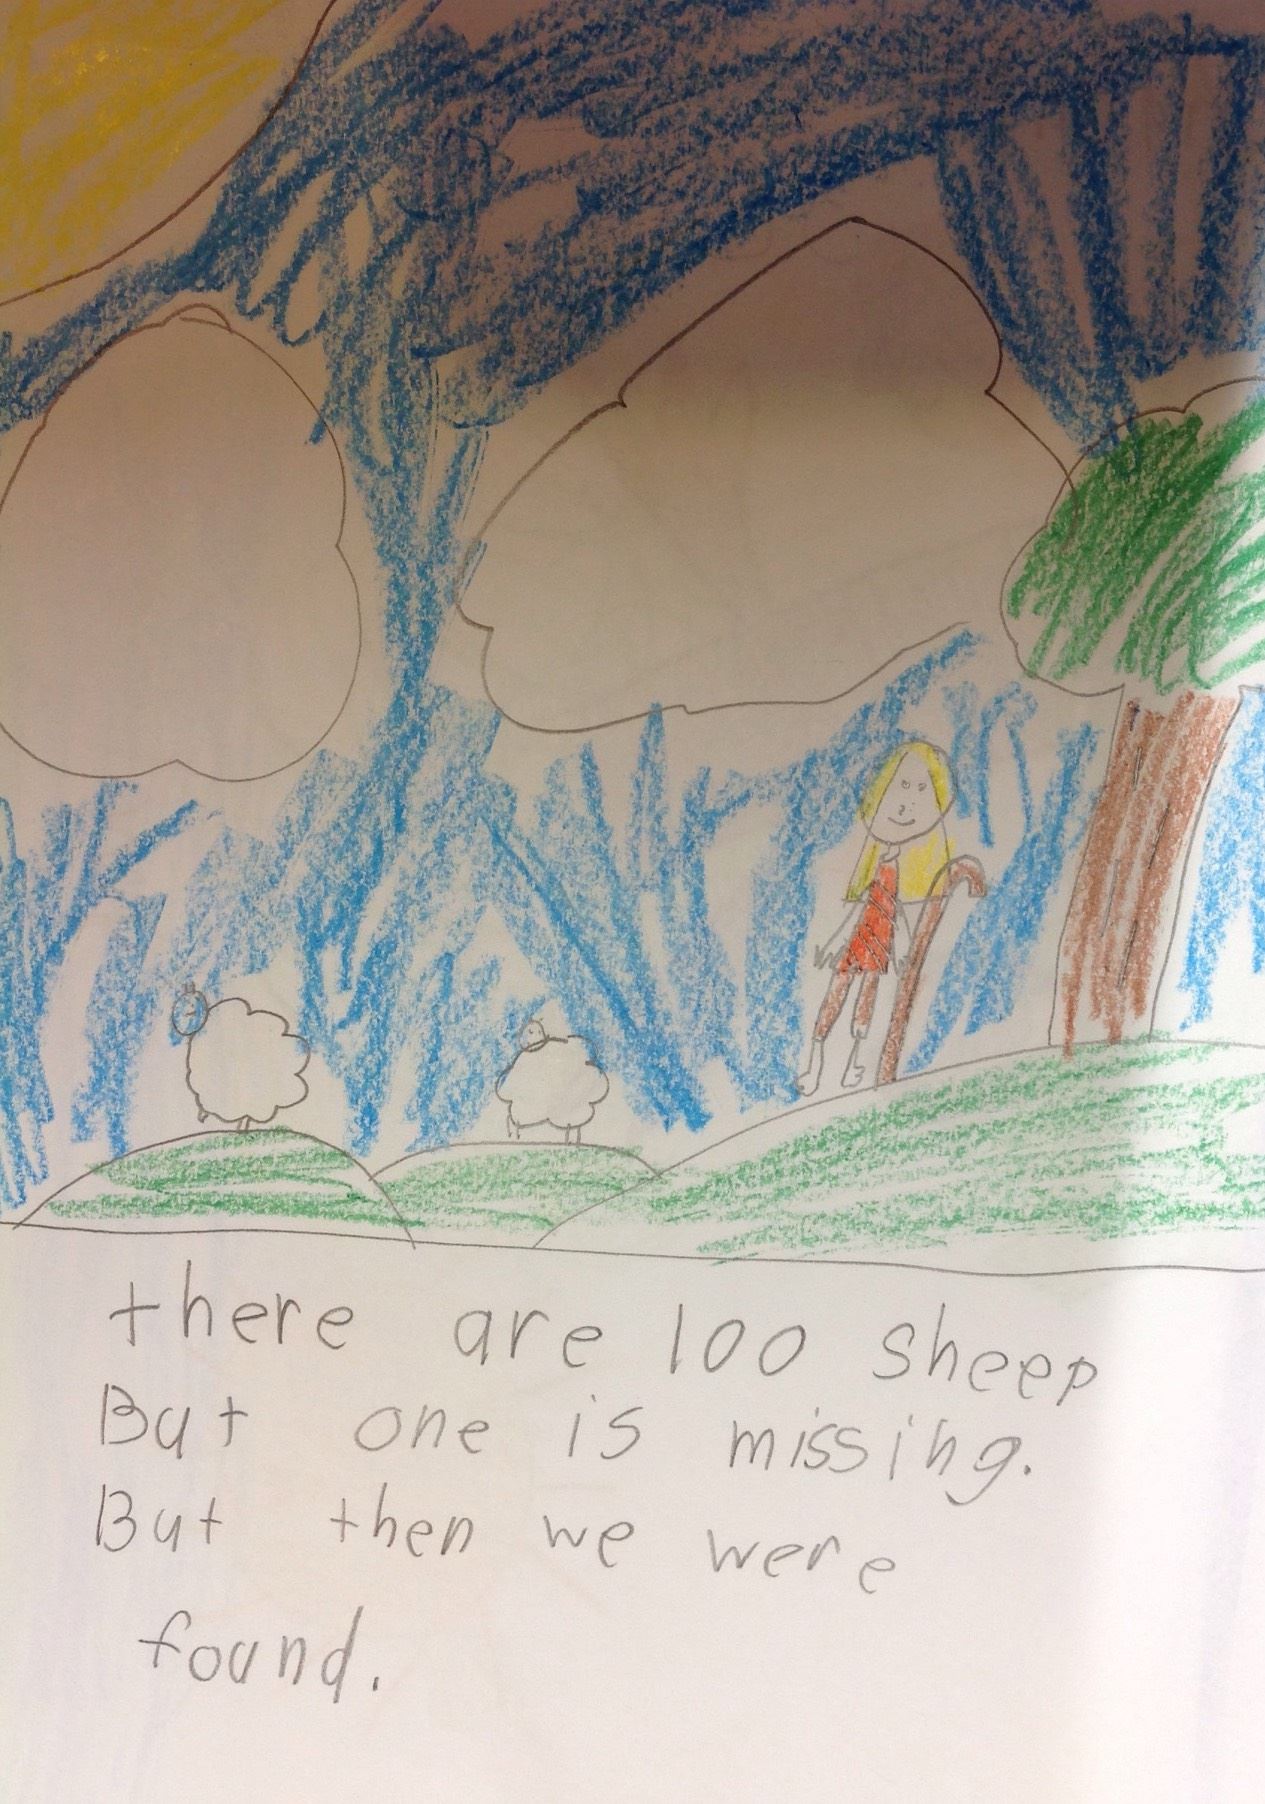 there are 100 sheep
But one is missing.
But then we were
found.